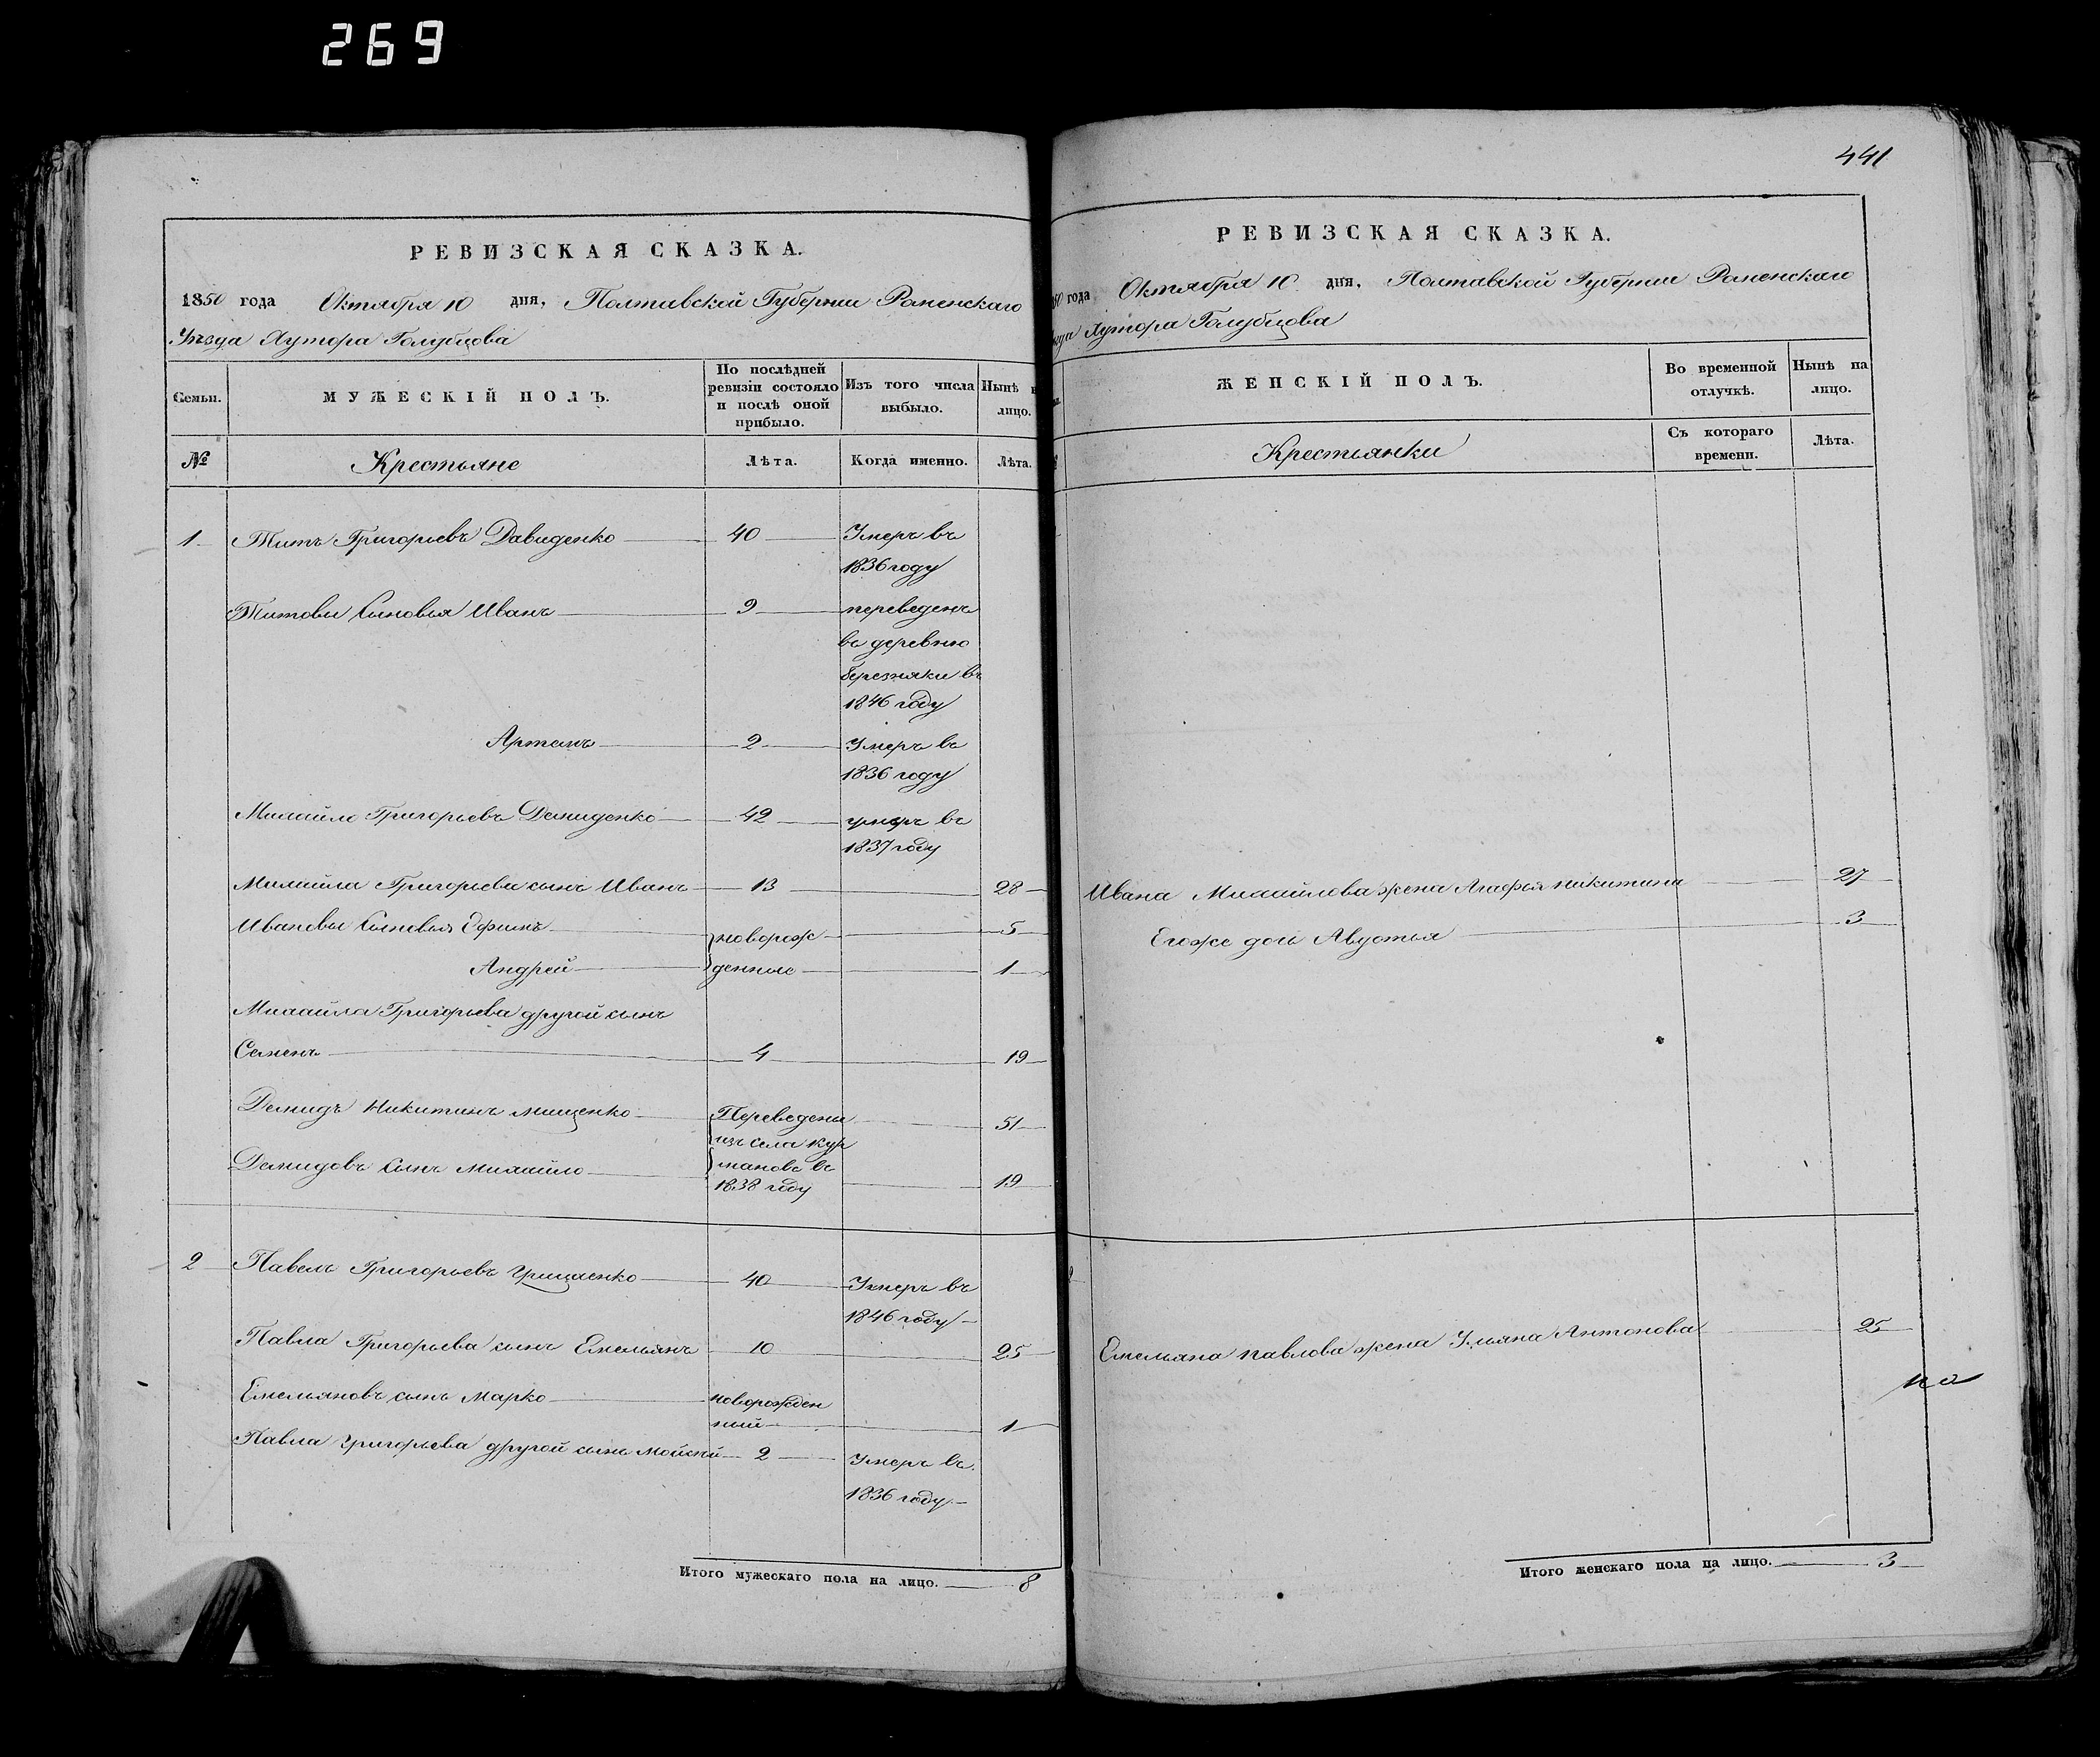 269
РЕВИЗСКАЯ СКАЗКА.
1850 года Октября 10 дня, Полтавской Губернии Роменскаго
Уѣзда Хутора Голубцова
Семьи.
МУЖЕСКІЙ ПОЛЪ.
По послѣдней
ревизіи состояло
и послѣ оной
прибыло.
Изъ того числа
выбыло.
Нынѣ н
лицо.
№
Крестьяне
Лѣта.
Когда именно.
Лѣта.
1 Титъ Григорьевъ Давиденко 40 Умеръ въ
1836 году
Титовы Сыновья Иванъ 9 переведенъ
въ деревню
березняки въ
1846 году
Артемъ 2 Умеръ въ
1836 году
Михайло Григорьевъ Демиденко 42 умеръ въ
1837 году
Михайла Григорьева сынъ Иванъ 13 28
Ивановы Сыновья Ефимъ новорож 5
Андрей денные 1
Михайла Григорьева другой сынъ
Семенъ 4 19
Демидъ Никитинъ Мищенко Переведены 51
изъ села кур
Демидовъ Сынъ Михайло манова въ 19
1838 году
2 Павелъ Григорьевъ Грищенко 40 Умеръ въ
1846 году
Павла Григорьева сынъ Емельянъ 10 25
Емельяновъ сынъ Марко новорожден
ный 1
Павла Григорьева другой сынъ Мойсей 2 Умеръ въ
1836 году
Итого мужескаго пола на лицо. 8
441
РЕВИЗСКАЯ СКАЗКА.
50 года Октября 10 дня, Полтавской Губернии Роменскаго
Хутора Голубцова
ЖЕНСКІЙ ПОЛЪ.
Во временной
отлучкѣ.
Нынѣ на
лицо.
Крестьянки
Съ котораго
времени.
Лѣта.
Ивана Михайлова жена Агафья Никитина 27
Егоже дочь Авдотья 3
Емельяна Павлова жена Ульяна Антонова 25
Итого женскаго пола на лицо. 3